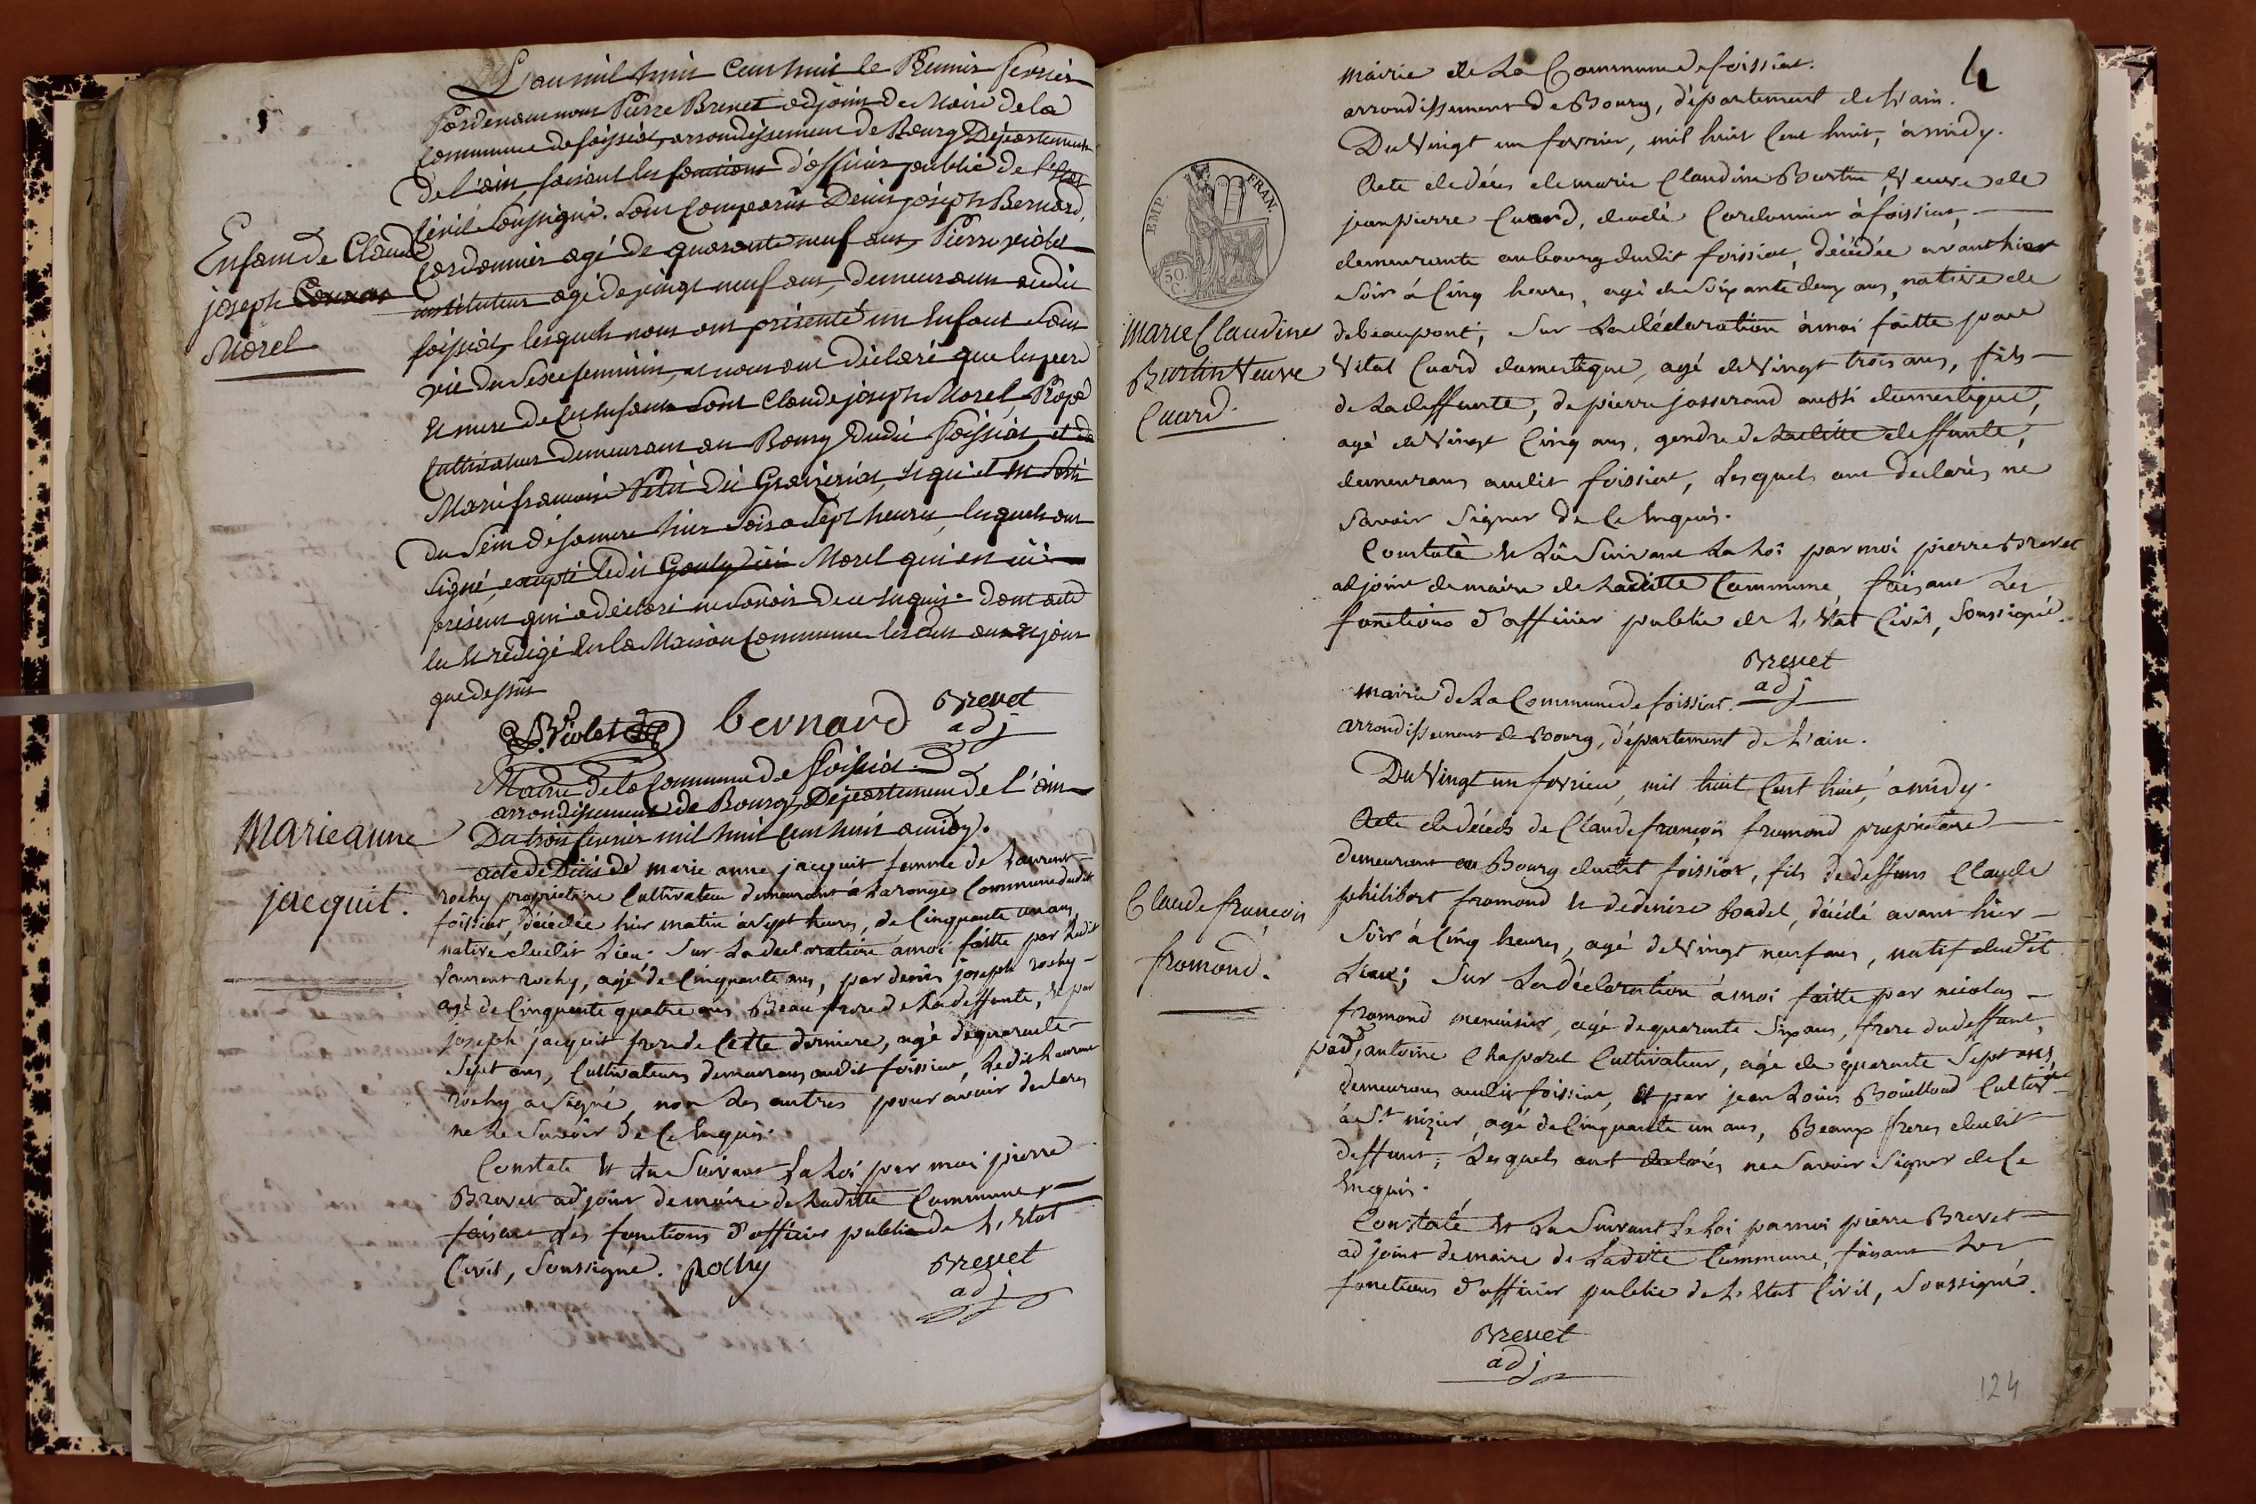 L'an mil huit cent huit le Premier fevrier
Pardevant nous Pierre Brevet adjoint de Maire de la
Commune de foissiat, arrondissement de Bourg Departement
de l'ain, faisant les fonctions d'officier public de l'etat
Civil soussigné. Sont comparus Denis joseph Bernard,
Cordonnier agé de quarante neuf ans, Pierre violet
instituteur agé de vingt neuf ans, demeurant audit
foissiat, lesquels nous ont présenté un Enfant sans
vie du sexe feminin, et nous ont déclaré que les pere
et mere de cet enfant sont Claude joseph Morel, Propre
Cultivateur demeurant au Bourg dudit foissiat, et de
Marie francoise Petit dit et qu'il est sorti
du sein de sa mere hier soir a sept heures, lesquels ont
signé, excepté ledit Morel qui est ici
présent qui a déclaré ne savoir de ce enquis. dont acte
lu et redigé en la Maison Commune les dits an et jour
que dessus
Enfant de Claude
joseph
Morel
P. Violet bernard Brevet
adj
Mairie de la Commune de foissiat.
arrondissement de Bourg, Département de l'ain
Du trois fevrier mil huit cent huit a midy.
Marie anne
jacquit.
acte de Décés de marie anne jacquit femme de Laurent
rochy propriétaire Cultivateur demeurant à Laronge Commune dudit
foissiat, décédée hier matin à sept heures, de Cinquante un ans,
native dudit Lieu. sur La declaration à moi faitte par Ledit
Laurent rochy, agé de Cinquante ans, par denis joseph rochy
agé de Cinquante quatre ans Beau frere de La deffunte, et par
joseph jacquit frere de Cette derniere, agé de quarante
Sept ans, Cultivateurs demeurans audit foissiat, Ledit Laurent
rochy a signé, non Les autres pour avoir declarés
ne Le Savoir de Ce Enquis.
Constaté et Lu Suivant La Loi par moi pierre
Brevet adjoint de maire de Laditte Commune
faisant Les fonctions d'officier public de L'Etat
Civil, Soussigné. Rochy Brevet
adj
4
mairie de La Commune de foissiat.
arrondissement de Bourg, département de L'ain.
Du Vingt un fevrier, mil huit Cent huit, à midy.
EMP. FRAN.
50.
C.
Marie Claudine
Burtin Veuve
Cuard.
Acte de déces de marie Claudine Burtin Veuve de
jean pierre Cuard, decedé Cordonnier à foissiat,
demeurante au bourg dudit foissiat, décédée avant hier
soir à Cinq heures, agé de soixante deux ans, native de
de beaupont, sur La déclaration à moi faitte par
Vital Cuard domestique, agé de Vingt trois ans, fils
de La deffunte, de pierre josserand aussi domestique,
agé de Vingt Cinq ans, gendre de Laditte deffunte,
demeurans audit foissiat, Lesquels ont declarés ne
Savoir Signer de Ce Enquis.
Constaté et Lû Suivant La Loi par moi pierre Brevet
adjoint de maire de Laditte Commune, faisant Les
fonctions d'officier public de L'Etat Civil, Soussigné.
Brevet
adj
mairie de La Commune de foissiat.
arrondissement de Bourg, département de L'ain.
Du Vingt un fevrier, mil huit Cent huit, à midy.
Claude françois
fromond.
Acte de décés de Claude françois fromond propriétaire
demeurant au Bourg dudit foissiat, fils de deffunt Claude
philibert fromond et de denize Badel, décédé avant hier
Soir à Cinq heures, agé de Vingt neuf ans, natif dudit
Lieu; Sur La déclaration à moi faitte par nicolas
fromond menuisier, agé de quarante Six ans, frere du deffunt,
par antoine Chaparel Cultivateur, agé de quarante Sept ans,
demeurans audit foissiat, et par jean Louis Bouilloud Cultiv
à St. nizier, agé de Cinquante un ans, Beaux freres dudit
deffunt; Lesquels ont declarés ne Savoir Signer de Ce
Enquis.
Constaté et Lu Suivant La Loi par moi pierre Brevet
adjoint de maire de Laditte Commune, faisant Les
fonctions d'officier public de L'Etat Civil, Soussigné.
Brevet
adj
124